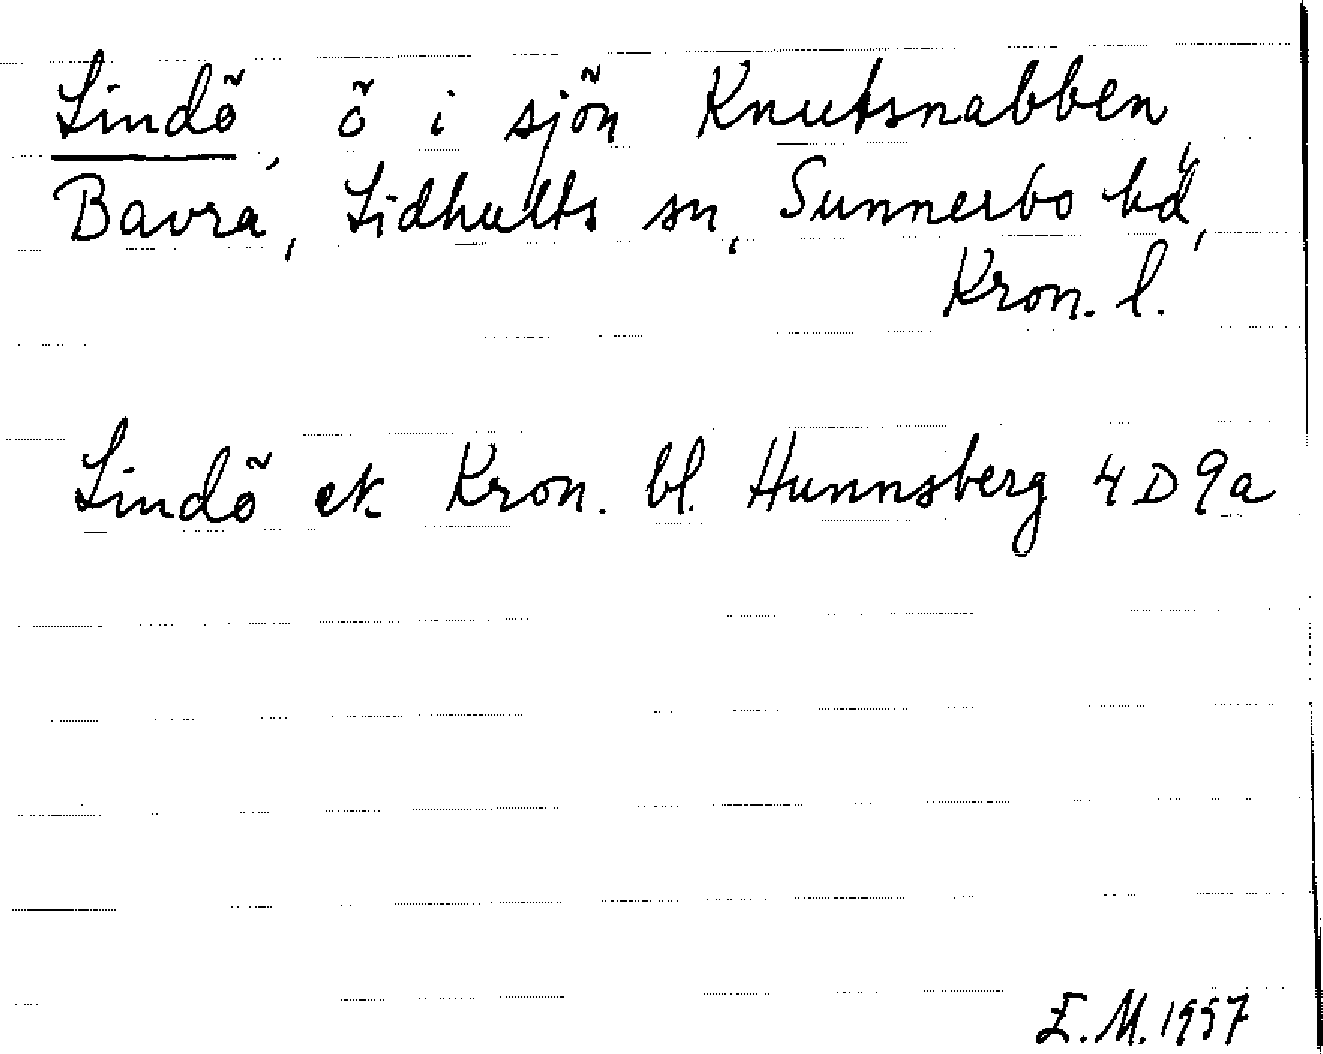 Lindö, ö i sjön Knutsnabben,
Bavra, Lidhults sn, Sunnerbo hd,
Kron. l.
Lindö ek Kron. bl. Hunnsberg 4D9a
E.M. 1957